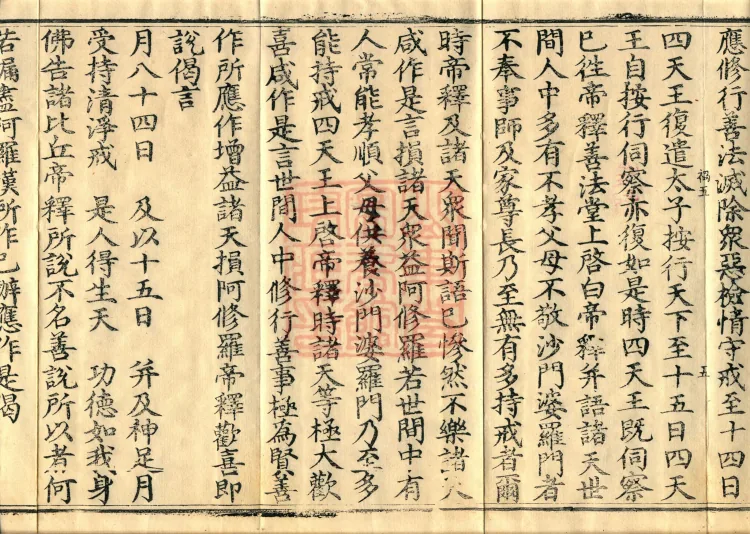 應修行善法滅除衆惡檢情守戒至十四日
四天王復遣太子按行天下至十五日四天
王自按行伺察亦復如是時四天王既伺察
已往帝釋善法堂上啓白帝釋并語諸天世
間人中多有不孝父母不敬沙門婆羅門者
不奉事師及家尊長乃至無有多持戒者爾
時帝釋及諸天衆聞斯語已慘然不樂諸天
咸作是言損諸天衆益阿修羅若世間中有
人常能孝順父母供養沙門婆羅門乃至多
能持戒四天王上啓帝釋時諸天等極大歡
喜咸作是言世間人中修行善事極為賢善
作所應作增益諸天損阿修羅帝釋歡喜即
說偈言
月八十四日 及以十五日 并及神足月
受持清淨戒 是人得生天 功德如我身
佛告諸比丘帝釋所說不名善說所以者何
若漏盡阿羅漢所作已辦應作是偈